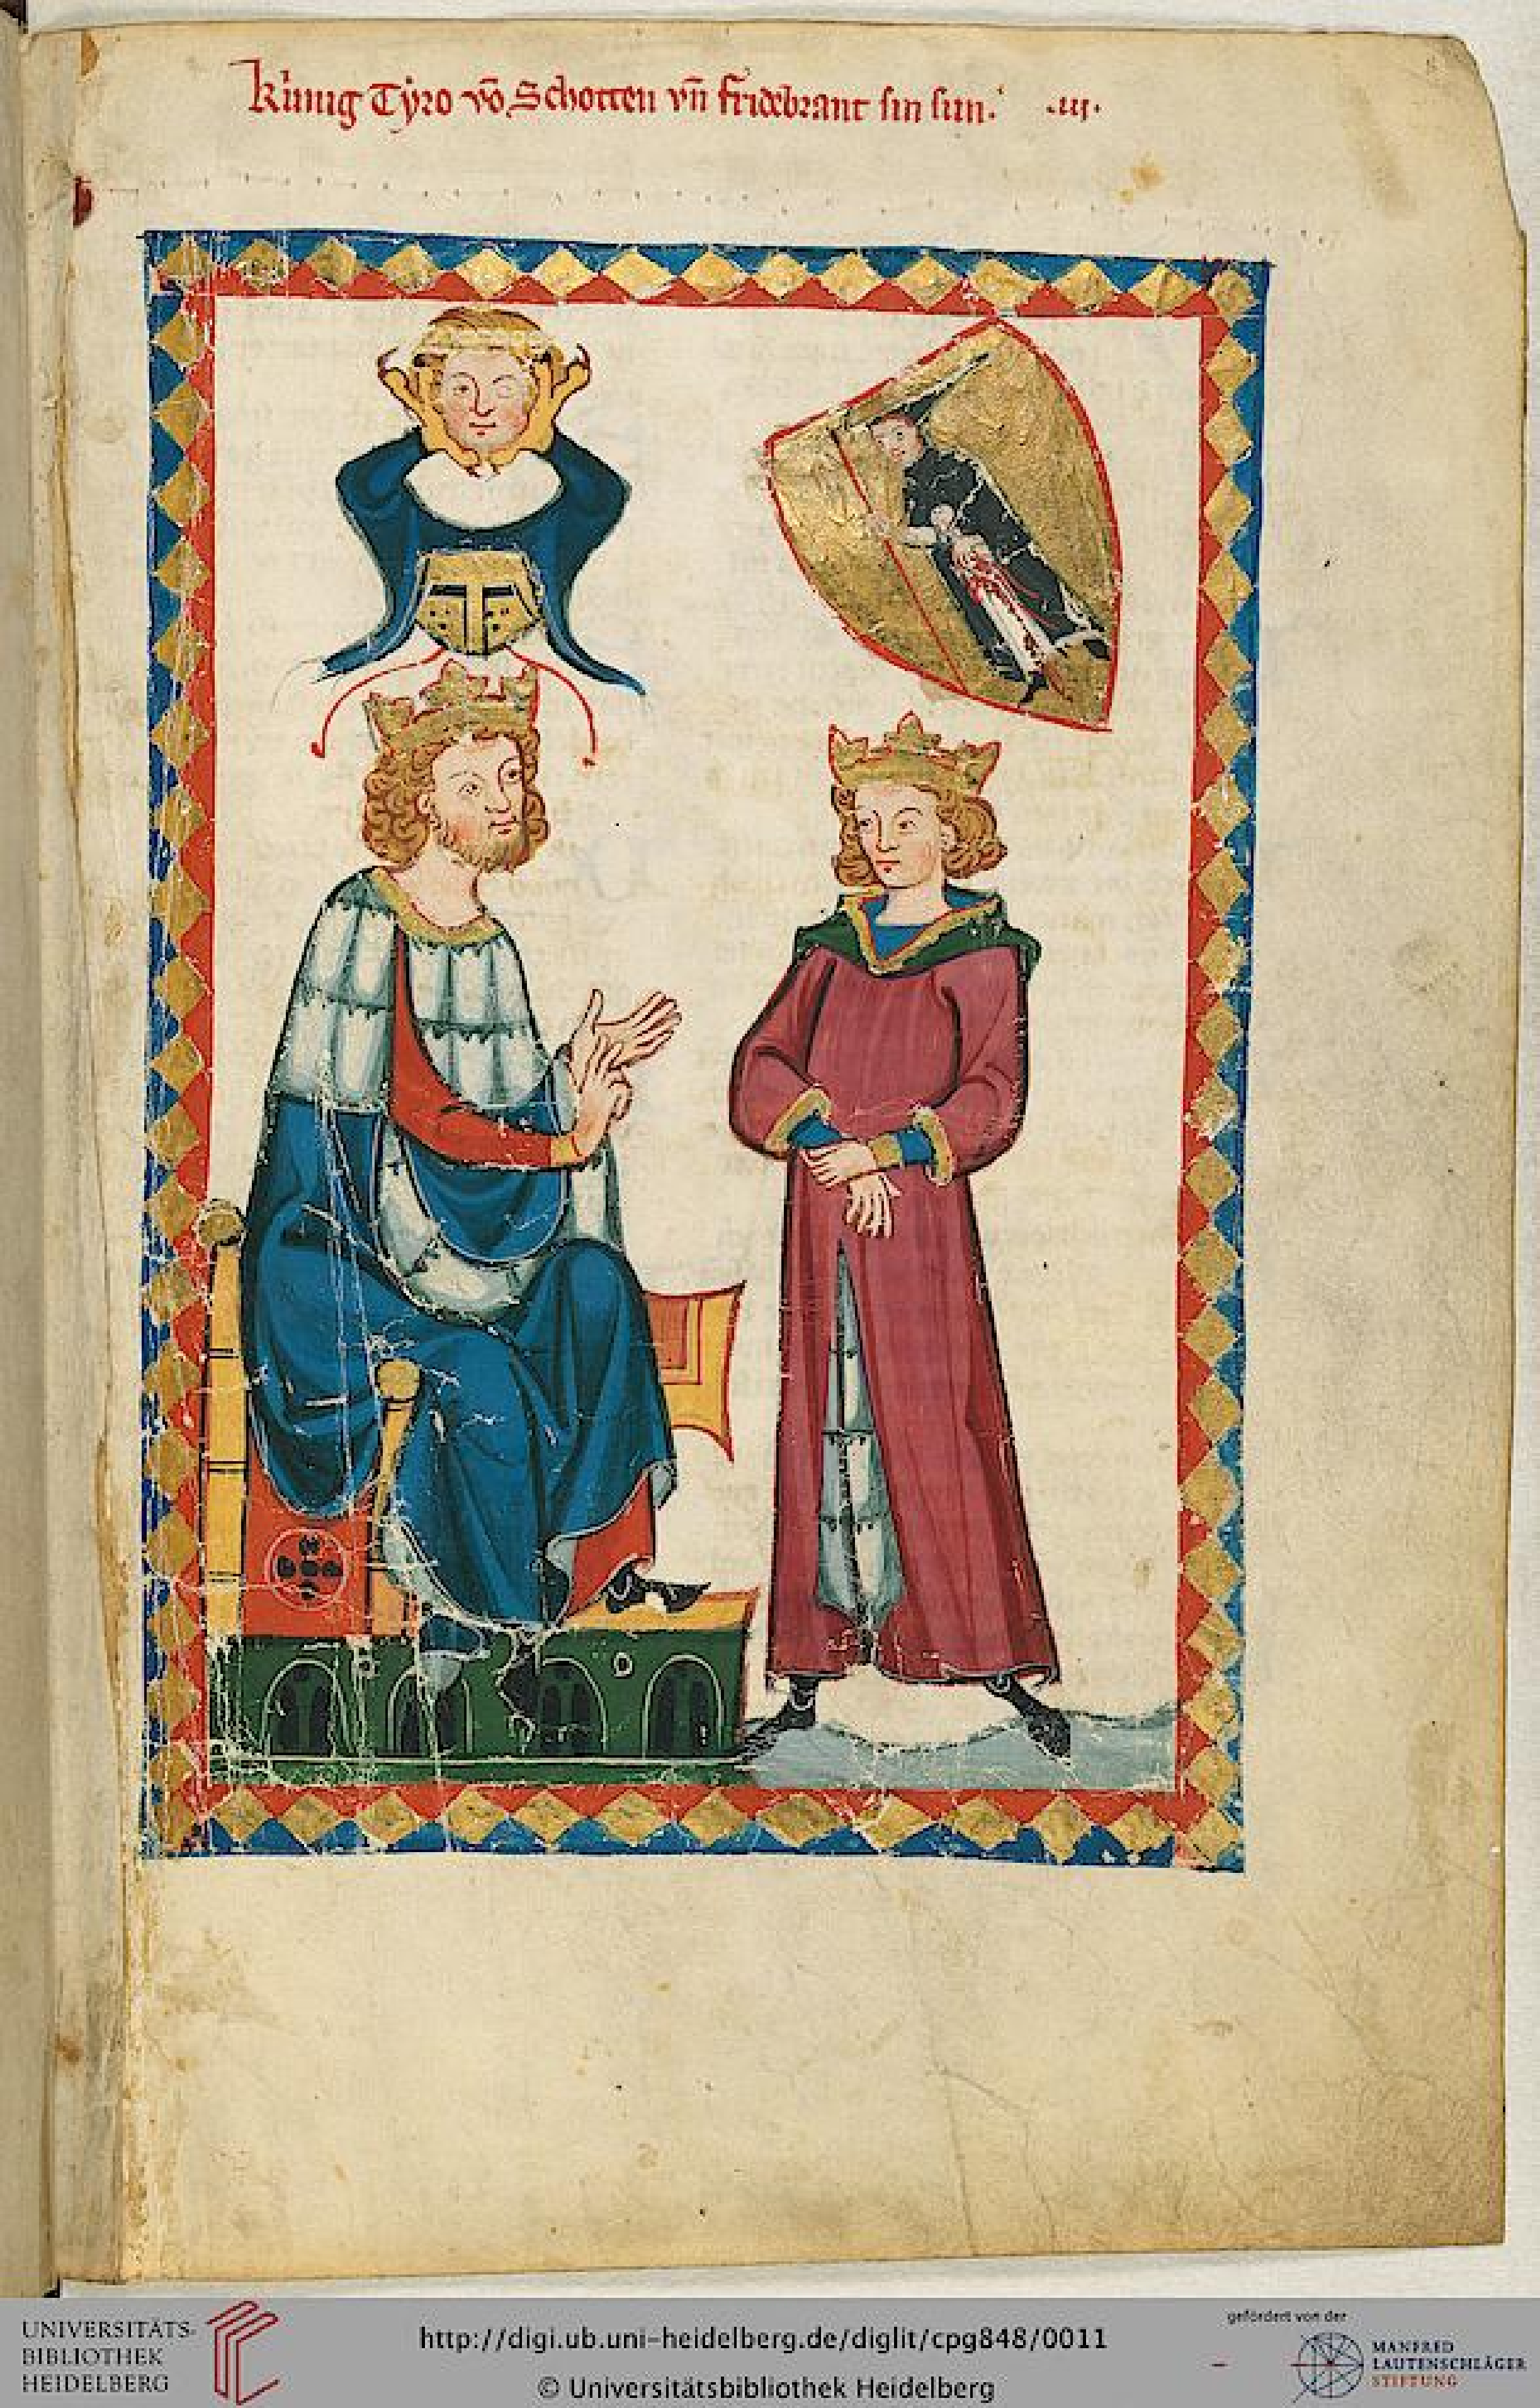 Kúnig Tyro vō Schotten vn̄ fridebrant sin sun. .iij.
UNIVERSITÄTS-
BIBLIOTHEK
HEIDELBERG
http://digi.ub.uni-heidelberg.de/diglit/cpg848/0011
© Universitätsbibliothek Heidelberg
gefördert von der
MANFRED
LAUTENSCHLÄGER
STIFTUNG